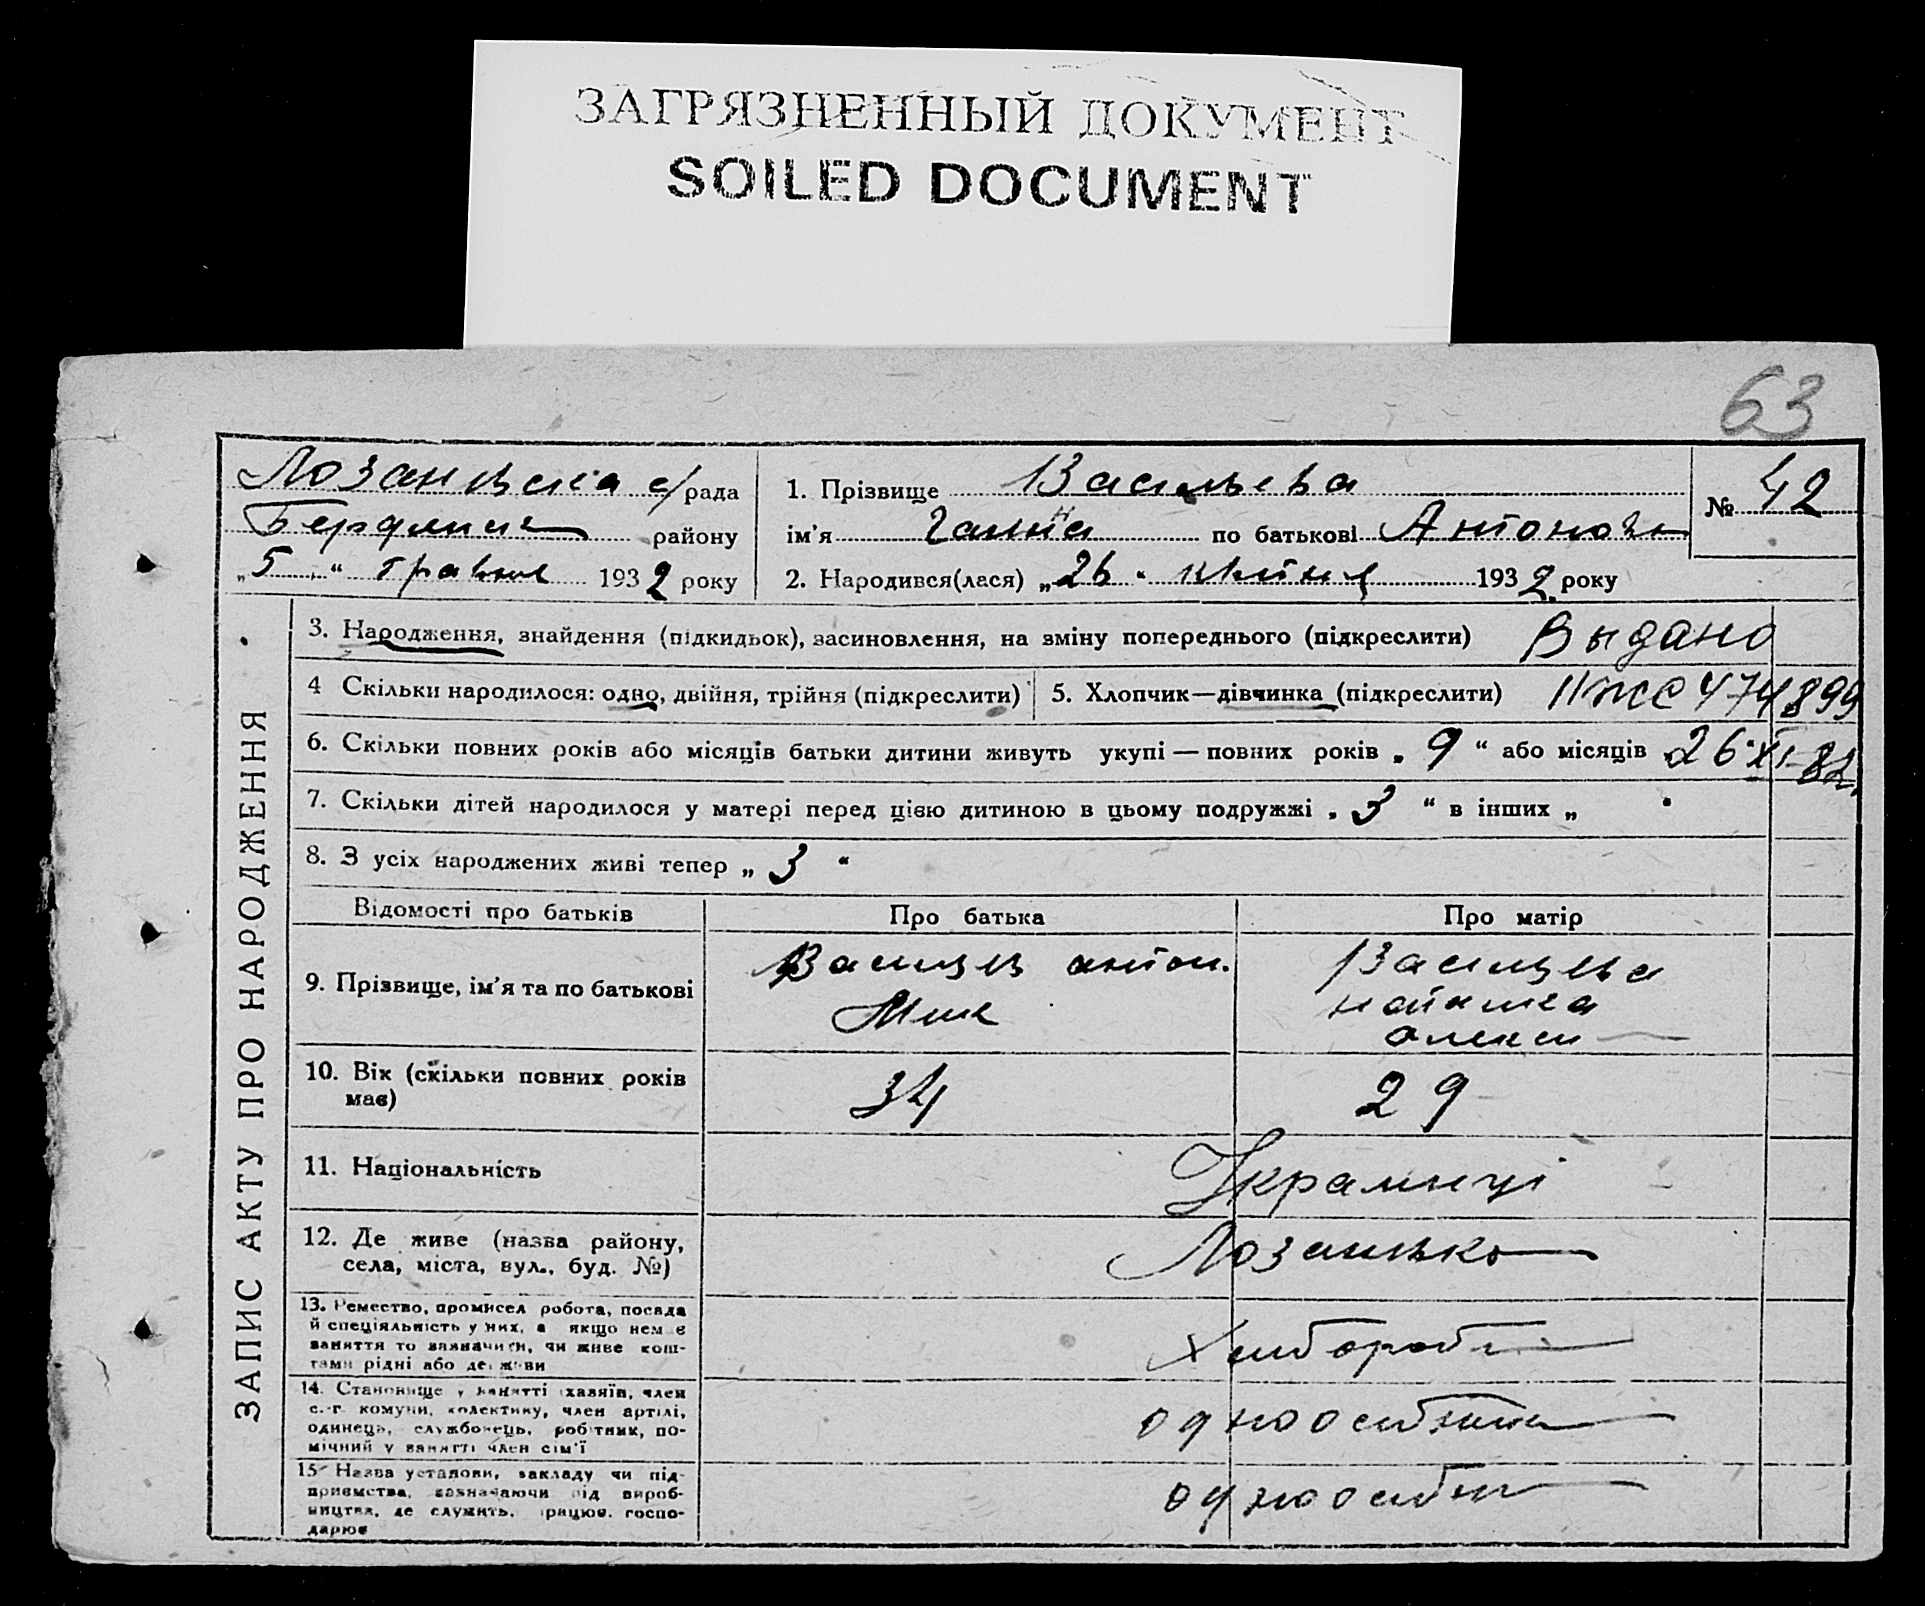 ЗАГРЯЗНЕННЫЙ ДОКУМЕНТ
SOILED DOCUMENT
63
ЗАПИС АКТУ ПРО НАРОДЖЕННЯ
Лозанівська с/рада
району
„5“ травня 1932 року
1. Прізвище Васильєва
ім'я Ганна по батькові Антонов
2. Народився(лася) „26“ квітня 1932 року
№ 42
3. Народження, знайдення (підкидьок), засиновлення, на зміну попереднього (підкреслити) Выдано
4 Скільки народилося: одно, двійня, трійня (підкреслити)
5. Хлопчик—дівчинка (підкреслити) 474899
6. Скільки повних років або місяців батьки дитини живуть укупі — повних років „9“ або місяців 26.XI-82.
7. Скільки дітей народилося у матері перед цією дитиною в цьому подружжі „3“ в інших „
8. З усіх народжених живі тепер „3“
Відомості про батьків
Про батька
Про матір
9. Прізвище, ім'я та по батькові
Антон.
Мих
Олексі
10. Вік (скільки повних років має)
34
29
11. Національність
Українці
12. Де живе (назва району,
села, міста, вул., буд. №)
13. Ремество, промисел робота, посада
й спеціяльність у них, а якщо нема є
заняття то зазначити, чи живе кош-
тами рідні або держави
Хлібороби
14. Становище у занятті хазяїн, член
с.-г. комуни, колективу, член артілі,
одинець, службовець, робітник, по-
мічний у занятті член сім'ї
15 Назва установи, закладу чи під-
приємства, зазначаючи від вироб-
ництва, де служить, працює, госпо-
дарює